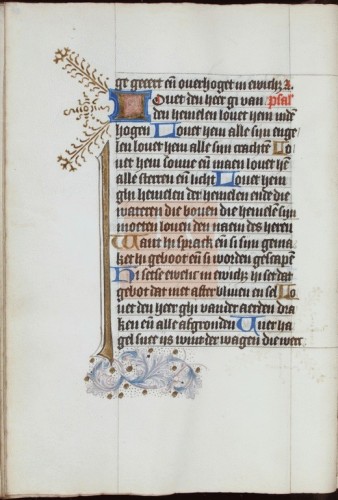 ge geeert eñ ouerhoget in ewich3 A.
Louet den heer gi van psal
den hemelen louet hem inde
hogen Louet hem alle sijn enge
len louet hem alle sijn crachten Lo
uet hem sonne eñ maen louet hē
alle sterren eñ licht Louet hem
ghi hemelen der hemelen ende die
wateren die bouen die hemelē sijn
moeten louen den naem des heren
Want hi sprack eñ si sijn gema
ket hi geboot eñ si worden gescapē
Hi setse ewelic in ewich3 hi set dat
gebot dat niet after bliuen en sel Lo
uet den heer ghi vander aerden dra
ken eñ alle afgronden Vuer ha
gel snee ijs wint der wagen die wert